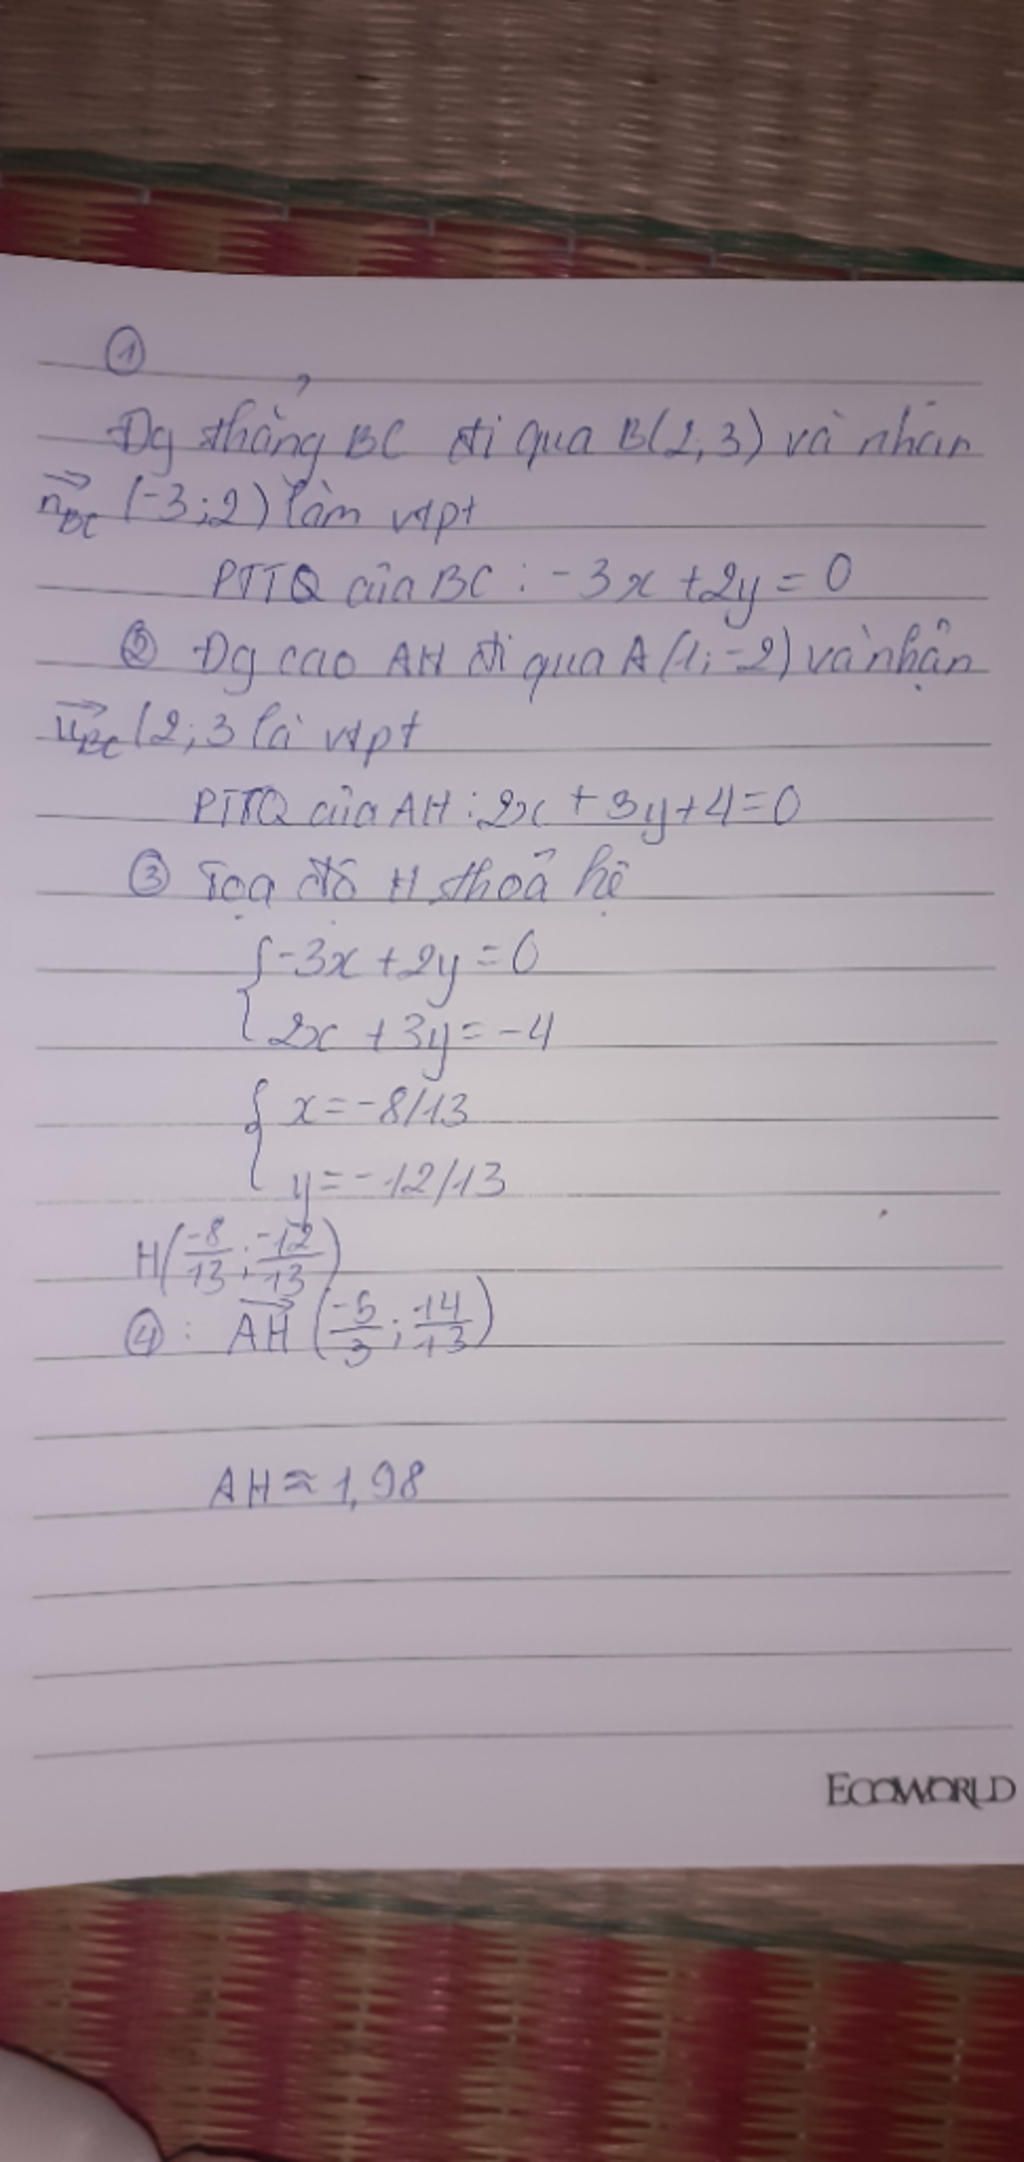 ①
Đg thẳng BC đi qua B(2,3) và nhân
n⃗BC (-3;2) làm vtpt
PTTQ của BC : -3x +2y = 0
② Đg cao AH đi qua A(1;-2) và nhận
u⃗BC (2;3 là vtpt
PTTQ của AH : 2x + 3y+4=0
③ Tọa độ H thoả hệ
{ -3x +2y = 0
2x +3y = -4
{ x = -8/13
y = -12/13
H(-8/13 ; -12/13)
④ : AH⃗ (-5/3 ; 14/13)
AH ≈ 1,98
ECOWORLD